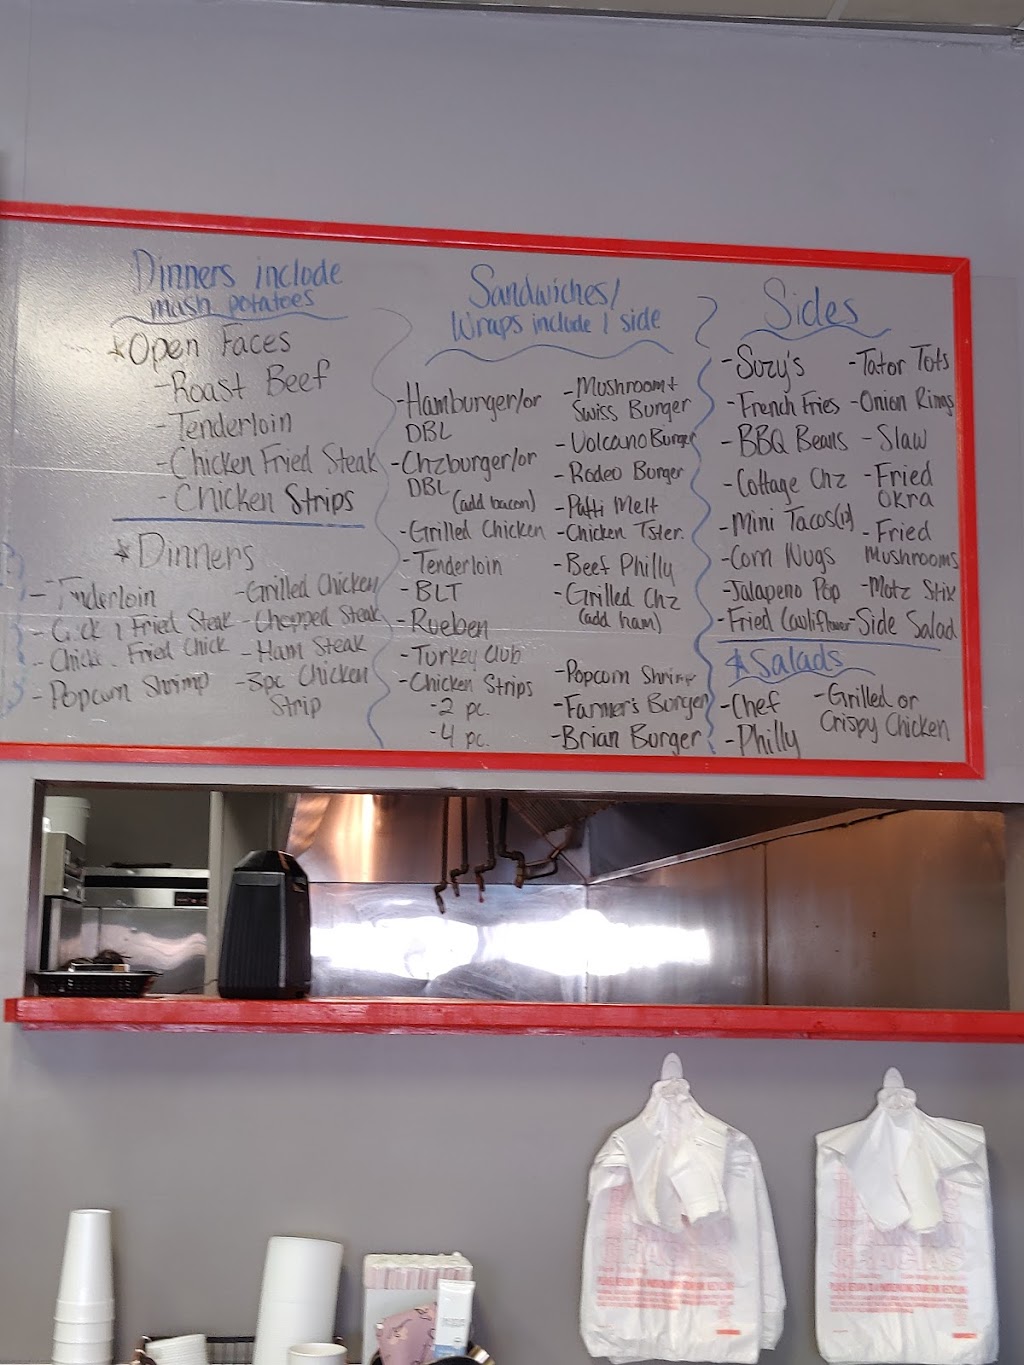 Dinners include
mash potatoes
*Open Faces
-Roast Beef
-Tenderloin
-Chicken Fried Steak
-Chicken Strips
*Dinners
-Tenderloin
Fried Steak
Fried Chick
-Popcorn Shrimp
-Grilled Chicken
-Chopped Steak
-Ham Steak
-3pc Chicken
Strip
Sandwiches/
Wraps include 1 side
-Hamburger/or
DBL
-Chzburger/or
DBL
(add bacon)
-Grilled Chicken
-Tenderloin
-BLT
-Rueben
-Turkey Club
-Chicken Strips
-2 pc.
-4 pc.
-Mushroom+
Swiss Burger
-Volcano Burger
-Rodeo Burger
-Patti Melt
-Chicken Tster.
-Beef Philly
-Grilled Chz
(add ham)
-Popcorn Shrimp
-Farmer's Burger
-Brian Burger
Sides
-Suzy's
-French Fries
-BBQ Beans
-Cottage Chz
-Mini Tacos
-Corn Nugs
-Jalapeno Pop
-Fried Cauliflower
-Tator Tots
-Onion Rings
-Slaw
-Fried
Okra
-Fried
Mushrooms
-Motz Stix
-Side Salad
*Salads
-Chef
-Philly
-Grilled or
Crispy Chicken
GRACIAS